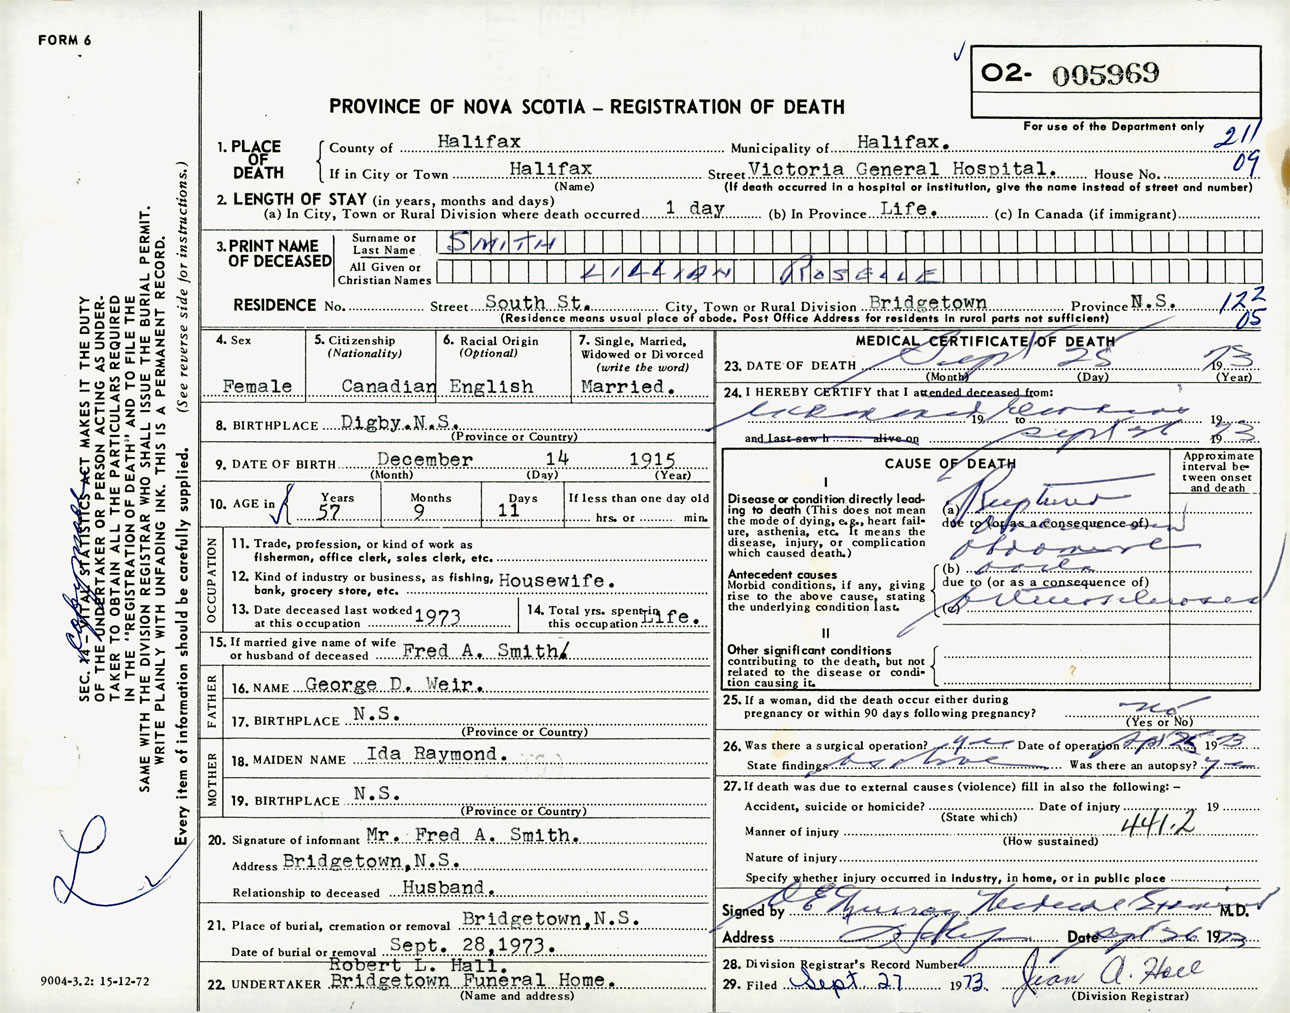 FORM 6
O2- 005969
PROVINCE OF NOVA SCOTIA – REGISTRATION OF DEATH
For use of the Department only
211
09
1. PLACE OF DEATH
County of Halifax Municipality of Halifax.
If in City or Town Halifax Street Victoria General Hospital. House No.
(Name) (If death occurred in a hospital or institution, give the name instead of street and number)
2. LENGTH OF STAY (in years, months and days)
(a) In City, Town or Rural Division where death occurred 1 day (b) In Province Life. (c) In Canada (if immigrant)
3. PRINT NAME OF DECEASED
Surname or Last Name SMITH
All Given or Christian Names LILLIAN ROSELLE
RESIDENCE No. Street South St. City, Town or Rural Division Bridgetown Province N.S.
(Residence means usual place of abode. Post Office Address for residents in rural parts not sufficient)
122
05
4. Sex
Female
5. Citizenship
(Nationality)
Canadian
6. Racial Origin
(Optional)
English
7. Single, Married,
Widowed or Divorced
(write the word)
Married.
8. BIRTHPLACE Digby.N.S.
(Province or Country)
9. DATE OF BIRTH December 14 1915
(Month) (Day) (Year)
10. AGE in
Years Months Days If less than one day old
57 9 11 hrs. or min.
OCCUPATION
11. Trade, profession, or kind of work as
fisherman, office clerk, sales clerk, etc.
12. Kind of industry or business, as fishing, Housewife.
bank, grocery store, etc.
13. Date deceased last worked
at this occupation 1973
14. Total yrs. spent in
this occupation Life.
15. If married give name of wife
or husband of deceased Fred A. Smith
FATHER
16. NAME George D. Weir.
17. BIRTHPLACE N.S.
(Province or Country)
MOTHER
18. MAIDEN NAME Ida Raymond.
19. BIRTHPLACE N.S.
(Province or Country)
20. Signature of informant Mr. Fred A. Smith.
Address Bridgetown,N.S.
Relationship to deceased Husband.
21. Place of burial, cremation or removal Bridgetown,N.S.
Date of burial or removal Sept. 28,1973.
Robert L. Hall.
22. UNDERTAKER Bridgetown Funeral Home.
(Name and address)
MEDICAL CERTIFICATE OF DEATH
23. DATE OF DEATH Sept 25 1973
(Month) (Day) (Year)
24. I HEREBY CERTIFY that I attended deceased from:
19 to
and last saw h alive on Sept 26 1973
CAUSE OF DEATH
Approximate
interval be-
tween onset
and death
I
Disease or condition directly lead-
ing to death (This does not mean
the mode of dying, e.g., heart fail-
ure, asthenia, etc. It means the
disease, injury, or complication
which caused death.)
(a) Ruptured
due to (or as a consequence of)
abdominal
Antecedent causes
Morbid conditions, if any, giving
rise to the above cause, stating
the underlying condition last.
(b) aorta
due to (or as a consequence of)
(c) arteriosclerosis
II
Other significant conditions
contributing to the death, but not
related to the disease or condi-
tion causing it.
25. If a woman, did the death occur either during
pregnancy or within 90 days following pregnancy? no
(Yes or No)
26. Was there a surgical operation? yes Date of operation Sept 25 1973
State findings as above Was there an autopsy? yes
27. If death was due to external causes (violence) fill in also the following: –
Accident, suicide or homicide? Date of injury 19
(State which)
441.2
Manner of injury
(How sustained)
Nature of injury
Specify whether injury occurred in industry, in home, or in public place
Signed by D E Murray Medical Examiner M.D.
Address Date Sept 26 1973
28. Division Registrar's Record Number
29. Filed Sept 27 1973. Jean A. Hall
(Division Registrar)
SEC. 14 – VITAL STATISTICS ACT MAKES IT THE DUTY
OF THE UNDERTAKER OR PERSON ACTING AS UNDER-
TAKER TO OBTAIN ALL THE PARTICULARS REQUIRED
IN THE "REGISTRATION OF DEATH" AND TO FILE THE
SAME WITH THE DIVISION REGISTRAR WHO SHALL ISSUE THE BURIAL PERMIT.
WRITE PLAINLY WITH UNFADING INK. THIS IS A PERMANENT RECORD.
Every item of information should be carefully supplied. (See reverse side for instructions.)
9004-3.2: 15-12-72